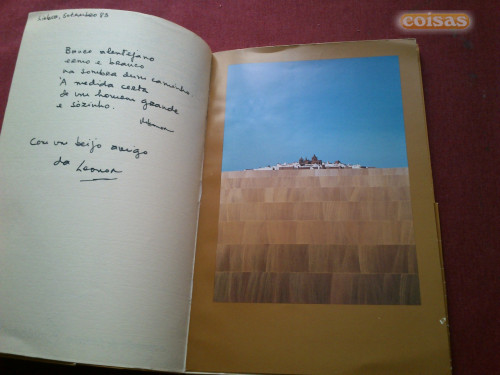 coisas
Lisboa, Setembro 83
Branco alentejano
sereno e branco
na sombra dum caminho
À medida certa
de um homem grande
e sózinho.
Com um beijo amigo
da Leonor